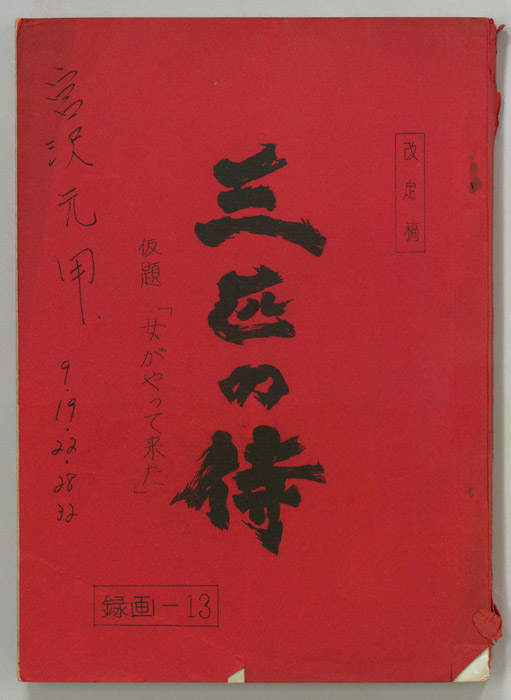 改定稿
三匹の侍
仮題「女がやって来た」
宮沢元用.
9.19.22.28
32
録画-13